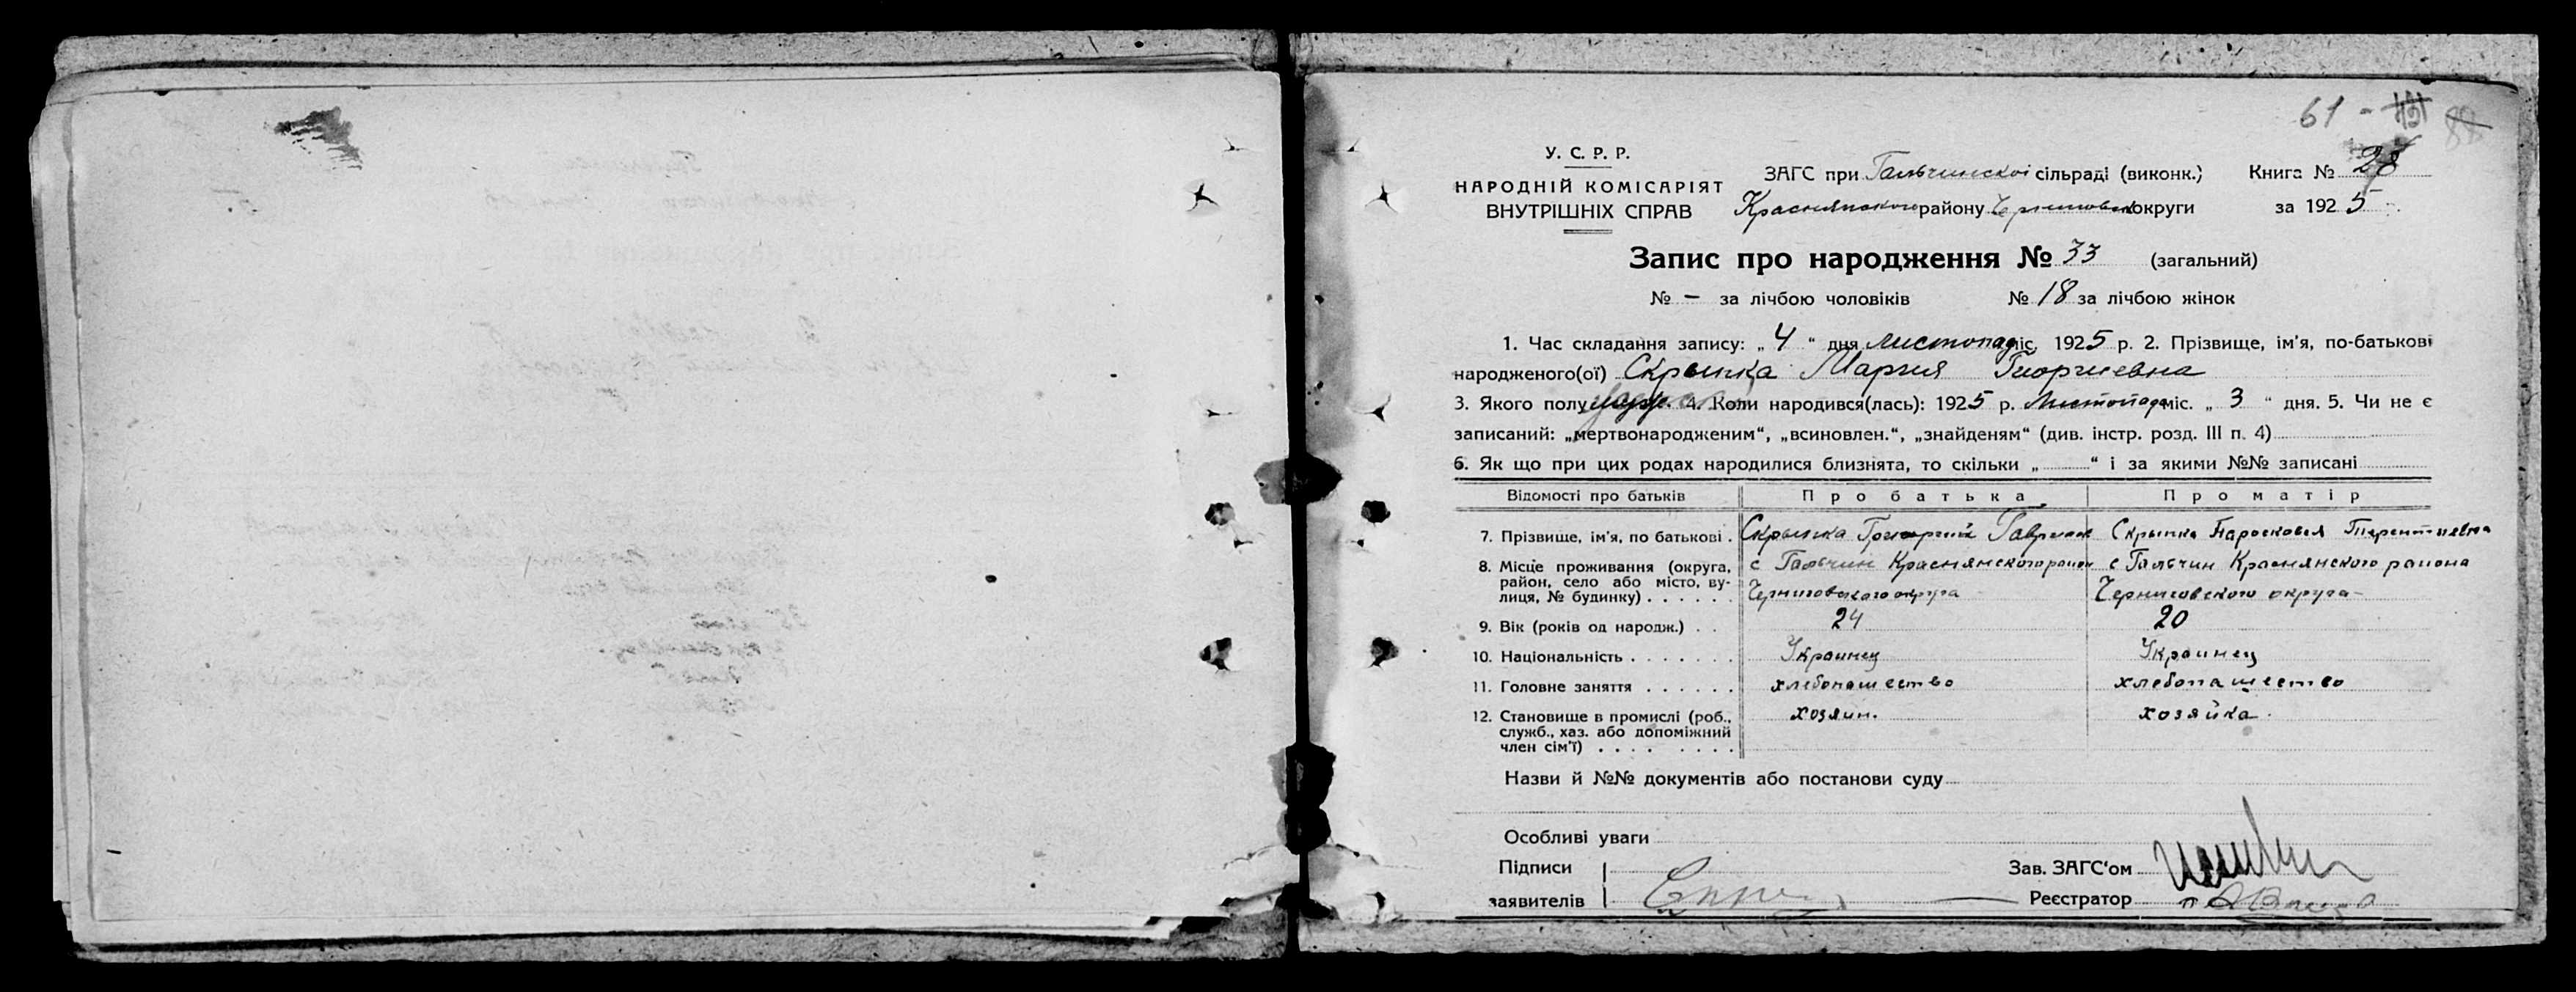 61 - 88
У. С. Р. Р.
НАРОДНІЙ КОМІСАРІЯТ
ВНУТРІШНІХ СПРАВ
ЗАГС при Гальчинской сільраді (виконк.) Книга № 28
Краснянского району Черниговск округи за 1925
Запис про народження № 33 (загальний)
№ – за лічбою чоловіків № 18 за лічбою жінок
1. Час складання запису: „ 4 “ дня листопад міс. 1925 р. 2. Прізвище, ім'я, по-батькові
народженого(ої) Скрыпка Мария Георгиевна
3. Якого полу 4. Коли народився(лась): 1925 р. Листопада міс. „ 3 “ дня. 5. Чи не є
записаний: „мертвонародженим“, „всиновлен.“, „знайденям“ (див. інстр. розд. III п. 4)
6. Як що при цих родах народилися близнята, то скільки „ “ і за якими №№ записані
Відомості про батьків Про батька Про матір
7. Прізвище, ім'я, по батькові . Скрыпка Скрыпка Парасковья Терентиевна
8. Місце проживання (округа, с Гальчин Краснянского район с Гальчин Краснянского района
район, село або місто, ву-
лиця, № будинку) . . . . . . Черниговского округа Черниговского округа –
9. Вік (років од народж.) . . 24 20
10. Національність . . . . . . . Украинец Украинец
11. Головне заняття . . . . . . хлебопашество хлебопашество
12. Становище в промислі (роб., хозяин. хозяйка.
служб., хаз. або допоміжний
член сім'ї) . . . . . . . .
Назви й №№ документів або постанови суду
Особливі уваги
Підписи Зав. ЗАГС'ом
заявителів Реєстратор